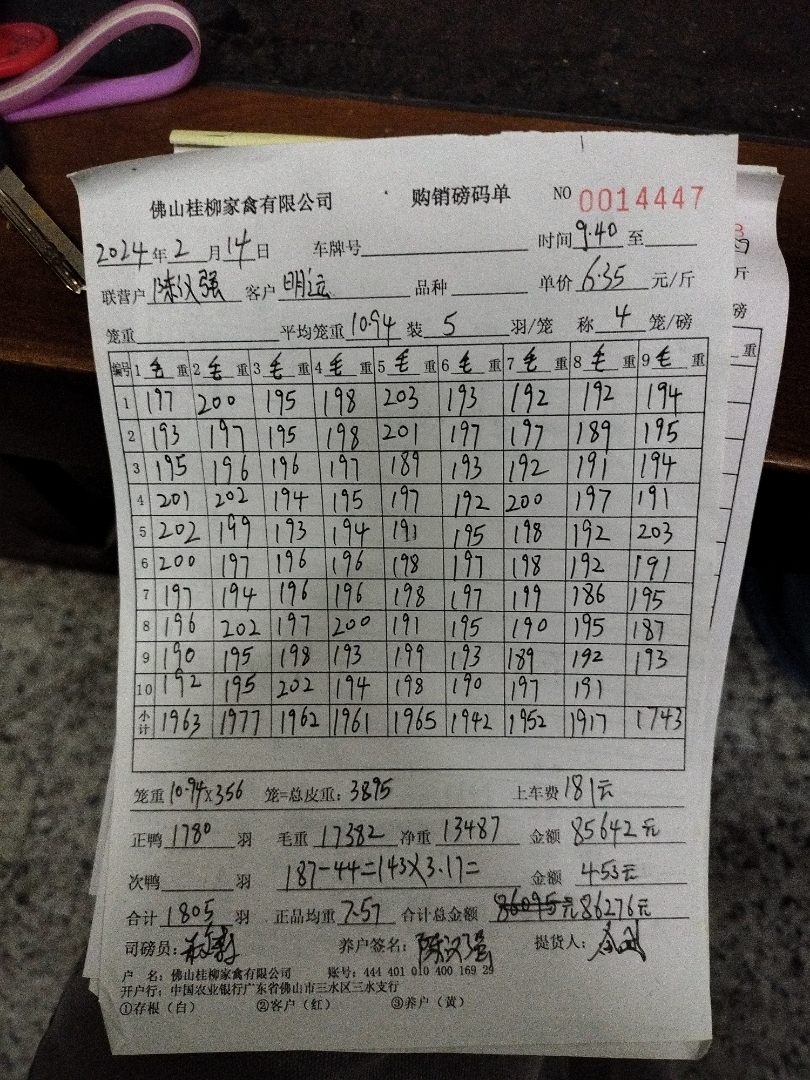 佛山桂柳家禽有限公司 购销磅码单 NO 0014447
2024年2月14日 车牌号 时间9.40至
联营户 陈汉强 客户 明运 品种 单价 6.35 元/斤
笼重 平均笼重 10.94 装 5 羽/笼 称 4 笼/磅
编号 1 毛 重 2 毛 重 3 毛 重 4 毛 重 5 毛 重 6 毛 重 7 毛 重 8 毛 重 9 毛 重
1 197 200 195 198 203 193 192 192 194
2 193 197 195 198 201 197 197 189 195
3 195 196 196 197 189 193 192 191 194
4 201 202 194 195 197 192 200 197 191
5 202 199 193 194 191 195 198 192 203
6 200 197 196 196 198 197 198 192 191
7 197 194 196 196 198 197 199 186 195
8 196 202 197 200 191 195 190 195 187
9 190 195 198 193 199 193 189 192 193
10 192 195 202 194 198 190 197 191
小计 1963 1977 1962 1961 1965 1942 1952 1917 1743
笼重 10.94×356 笼=总皮重: 3895 上车费 181元
正鸭 1780 羽 毛重 17382 净重 13487 金额 85642元
次鸭 羽 187-44=143×3.17= 金额 453元
合计 1805 羽 正品均重 7.57 合计总金额 86095元 86276元
司磅员: 养户签名: 陈汉强 提货人:
户 名: 佛山桂柳家禽有限公司 账号: 444 401 010 400 169 29
开户行: 中国农业银行广东省佛山市三水区三水支行
①存根(白) ②客户(红) ③养户(黄)